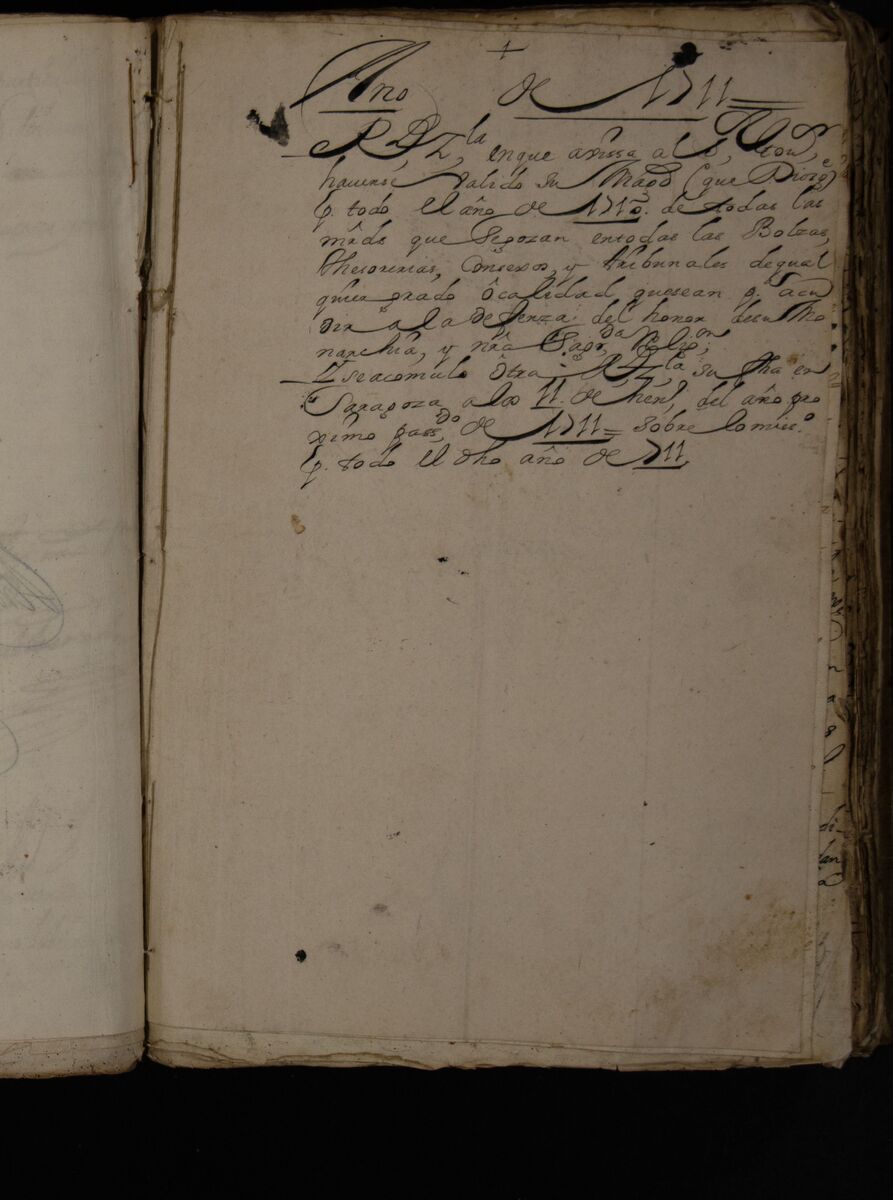 +
Año de 1711=
R. D, Z,la, enque avissa al
hauerse valido su Magd (que Dios ge)
p. todo el año de 1710. de todas las
mrds que Segozan entodas las Bolzas,
thesorerias, Consexos, y tribunales dequal
quier grado ô calidad quesean pa acu
dir a la defenza del honor desu Mo
narchia, y nrâ Sagrda Religon,
Z seacomulo ôtra R. Z,la su fha en
Saragoza alos 11. de hen,o del año pro
ximo pass,do de 1711= sobre lomis.o
p. todo el dho año de 711